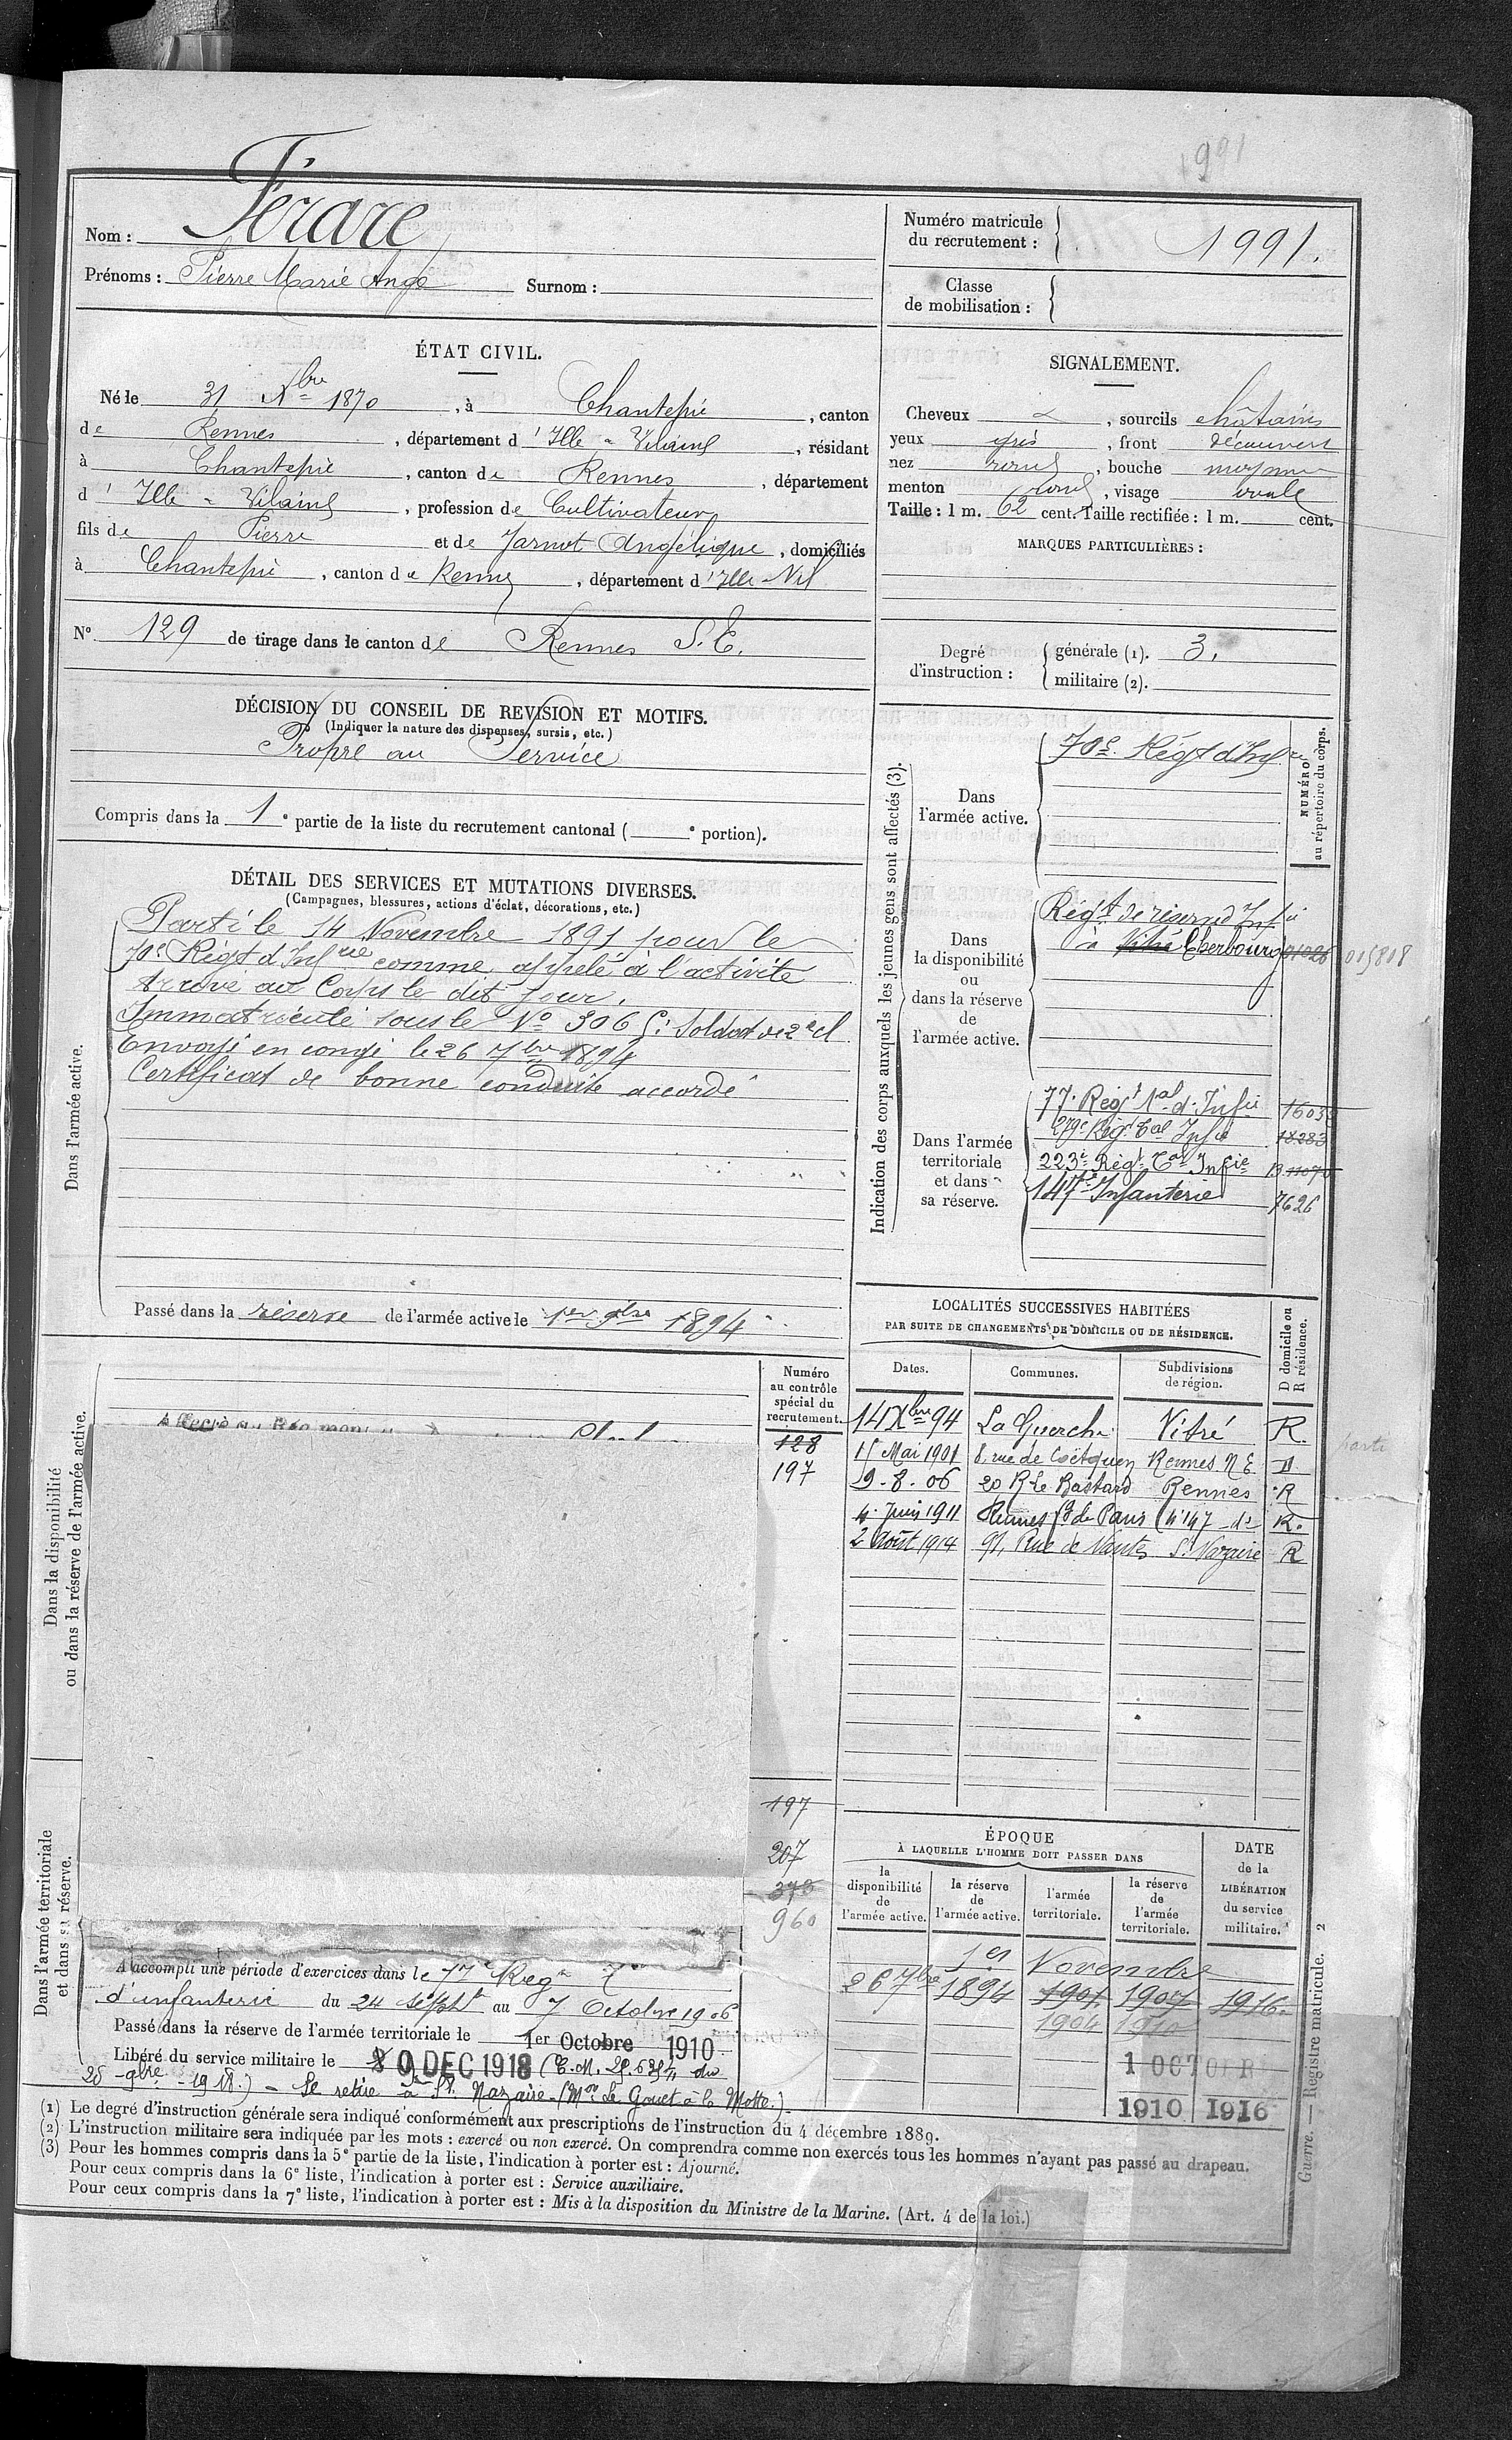 1991
Nom : Férare
Prénoms : Pierre Marie Ange Surnom :
Numéro matricule du recrutement : 1991.
Classe de mobilisation :
ÉTAT CIVIL.
Né le 31 Xbre 1870, à Chantepie, canton
de Rennes, département d'Ille & Vilaine, résidant
à Chantepie, canton de Rennes, département
d'Ille & Vilaine, profession de Cultivateur
fils de Pierre et de Jarnot Angélique, domiciliés
à Chantepie, canton de Rennes, département d'Ille & Vil
N° 129 de tirage dans le canton de Rennes S.E.
SIGNALEMENT.
Cheveux , sourcils châtains
yeux gris, front découvert
nez rond, bouche moyenne
menton rond, visage ovale
Taille : 1 m. 62 cent. Taille rectifiée : 1 m. cent.
MARQUES PARTICULIÈRES :
Degré d'instruction : générale (1). 3.
militaire (2).
DÉCISION DU CONSEIL DE REVISION ET MOTIFS.
(Indiquer la nature des dispenses, sursis, etc.)
Propre au Service
Compris dans la 1e partie de la liste du recrutement cantonal ( e portion).
DÉTAIL DES SERVICES ET MUTATIONS DIVERSES.
(Campagnes, blessures, actions d'éclat, décorations, etc.)
Dans l'armée active.
Parti le 14 Novembre 1891 pour le
70e Régt d'Infrie comme appelé à l'activité
Arrivé au Corps le dit jour.
Immatriculé sous le No 3065: Soldat de 2e cl
Envoyé en congé le 26 7bre 1894
Certificat de bonne conduite accordé
Passé dans la réserve de l'armée active le 1er 9bre 1894
Indication des corps auxquels les jeunes gens sont affectés (3).
NUMÉRO au répertoire du corps.
Dans l'armée active.
70e Régt d'Infrie
Dans la disponibilité ou dans la réserve de l'armée active.
Régt de réserve d'Infie
à Vitré Cherbourg 01026 015818
Dans l'armée territoriale et dans sa réserve.
77e Régt Tal d'Infie 16035
279e Régt Tal Infie 18283
223e Régt Tal Infie B 11070
147e Infanterie 7626
LOCALITÉS SUCCESSIVES HABITÉES
PAR SUITE DE CHANGEMENTS DE DOMICILE OU DE RÉSIDENCE.
D domicile ou R résidence.
Dates. Communes. Subdivisions de région.
14 Xbre 94 La Guerche Vitré R.
15 Mai 1901 8, rue de Coëtquen Rennes N E D
9-8-06 20 R Le Bastard Rennes R
4 Juin 1911 Rennes fg de Paris n° 147 do R.
2 Août 1914 91, Rue de Nantes St Nazaire R
Dans la disponibilité ou dans la réserve de l'armée active.
Numéro au contrôle spécial du recrutement.
128
197
197
207
378
960
ÉPOQUE
À LAQUELLE L'HOMME DOIT PASSER DANS
la disponibilité de l'armée active.
la réserve de l'armée active.
l'armée territoriale.
la réserve de l'armée territoriale.
DATE de la LIBÉRATION du service militaire.
1er Novembre
26 7bre 1894 1901 1907 1916
1904 1910
1 OCTOBR
1910 1916
Dans l'armée territoriale et dans sa réserve.
A accompli une période d'exercices dans le 77e Régt Tal
d'infanterie du 24 Septbre au 7 Octobre 1906
Passé dans la réserve de l'armée territoriale le 1er Octobre 1910
Libéré du service militaire le 30 DEC 1918 (C.M. du
25 - 9bre - 1918.) - Se retire à St. Nazaire - (Mon Le Gouet à la Motte.)
(1) Le degré d'instruction générale sera indiqué conformément aux prescriptions de l'instruction du 4 décembre 1889.
(2) L'instruction militaire sera indiquée par les mots : exercé ou non exercé. On comprendra comme non exercés tous les hommes n'ayant pas passé au drapeau.
(3) Pour les hommes compris dans la 5e partie de la liste, l'indication à porter est : Ajourné.
Pour ceux compris dans la 6e liste, l'indication à porter est : Service auxiliaire.
Pour ceux compris dans la 7e liste, l'indication à porter est : Mis à la disposition du Ministre de la Marine. (Art. 4 de la loi.)
Guerre. — Registre matricule. 2